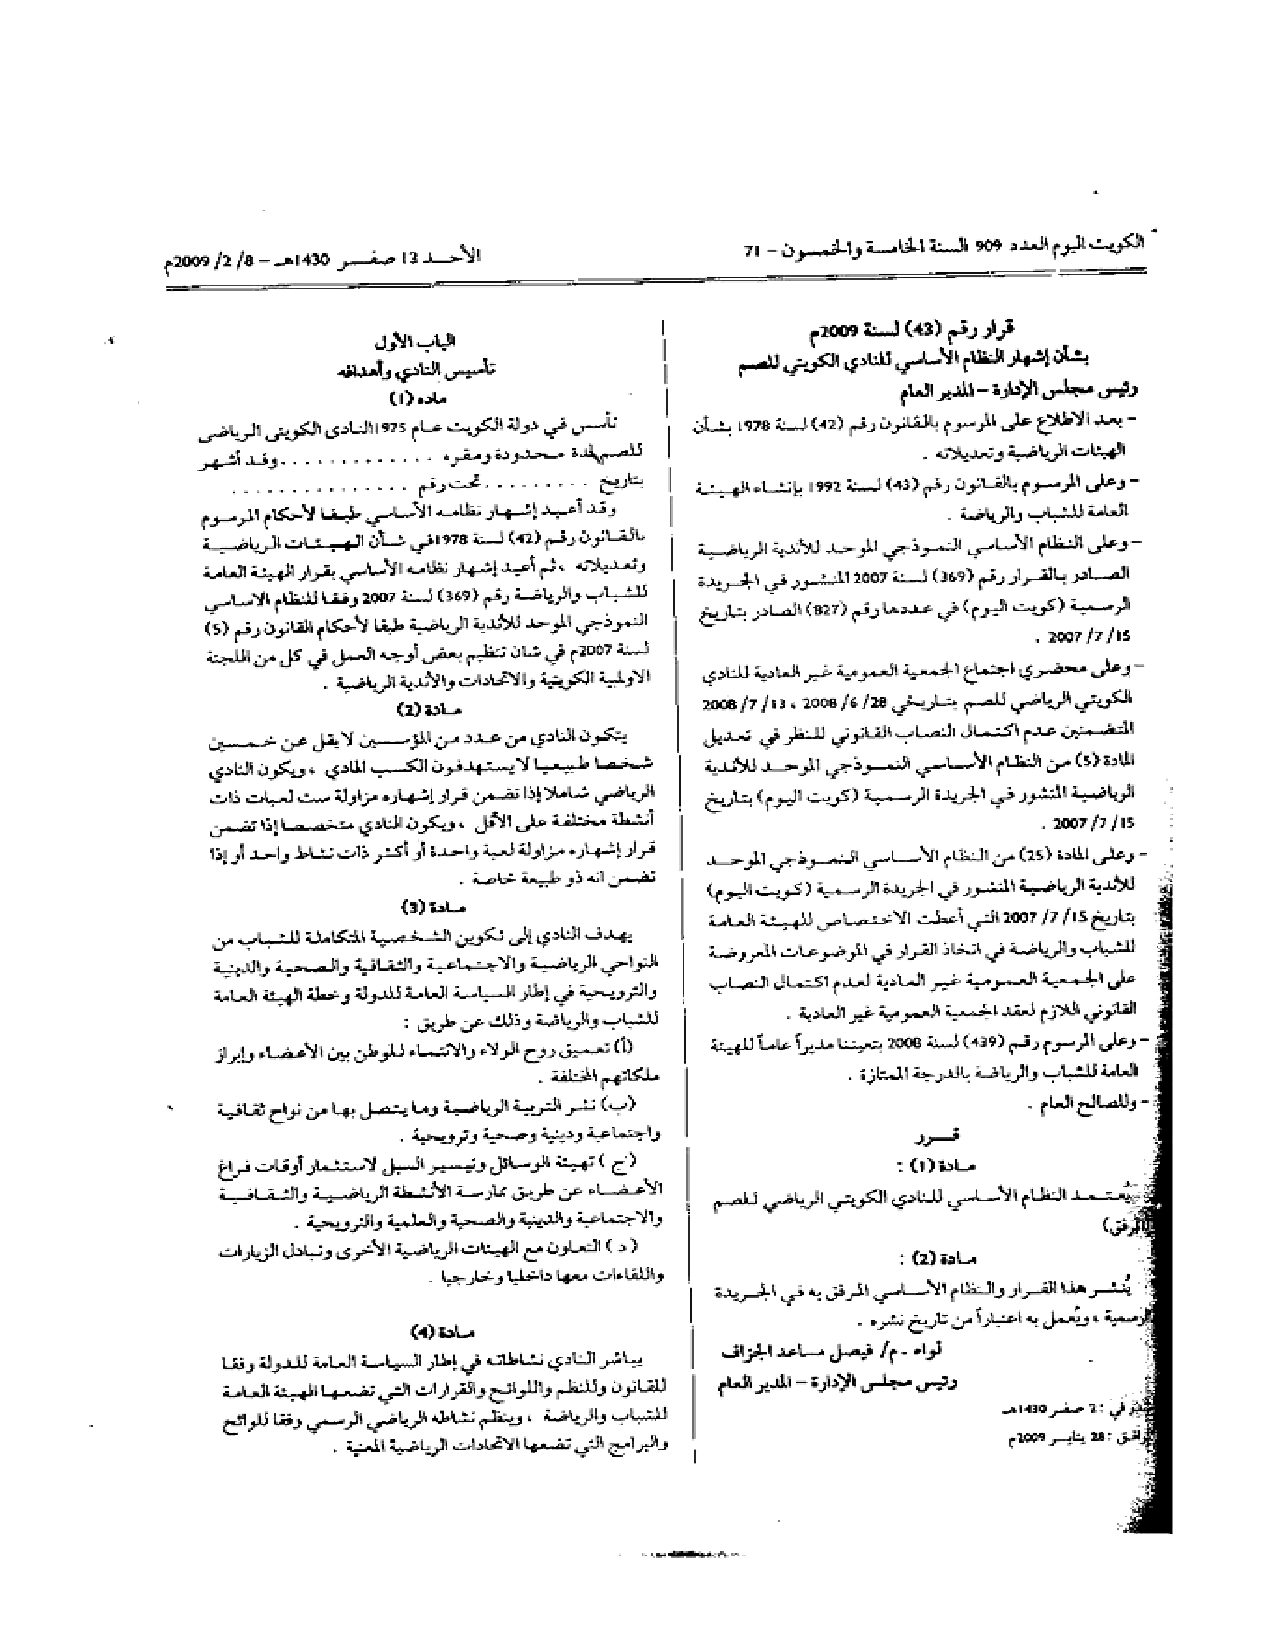 الكويت اليوم العدد 909 السنة الخامسة والخمسون - 71
الأحد 13 صفر 1430هـ - 8/ 2/ 2009م
قرار رقم (43) لسنة 2009م
بشأن إشهار النظام الأساسي للنادي الكويتي للصم
رئيس مجلس الإدارة - المدير العام
- بعد الاطلاع على المرسوم بالقانون رقم (42) لسنة 1978 بشأن
الهيئات الرياضية وتعديلاته .
- وعلى المرسوم بالقانون رقم (43) لسنة 1992 بإنشاء الهيئة
العامة للشباب والرياضة .
- وعلى النظام الأساسي النموذجي الموحد للأندية الرياضية
الصادر بالقرار رقم (369) لسنة 2007 المنشور في الجريدة
الرسمية (كويت اليوم) في عددها رقم (827) الصادر بتاريخ
15/ 7/ 2007 .
- وعلى محضري اجتماع الجمعية العمومية غير العادية للنادي
الكويتي الرياضي للصم بتاريخي 28/ 6/ 2008 ، 13/ 7/ 2008
المتضمنين عدم اكتمال النصاب القانوني للنظر في تعديل
المادة (5) من النظام الأساسي النموذجي الموحد للأندية
الرياضية المنشور في الجريدة الرسمية (كويت اليوم) بتاريخ
15/ 7/ 2007 .
- وعلى المادة (25) من النظام الأساسي النموذجي الموحد
للأندية الرياضية المنشور في الجريدة الرسمية (كويت اليوم)
بتاريخ 15/ 7/ 2007 التي أعطت الاختصاص للهيئة العامة
للشباب والرياضة في اتخاذ القرار في الموضوعات المعروضة
على الجمعية العمومية غير العادية لعدم اكتمال النصاب
القانوني اللازم لعقد الجمعية العمومية غير العادية .
- وعلى المرسوم رقم (439) لسنة 2008 بتعيينا مديراً عاماً للهيئة
العامة للشباب والرياضة بالدرجة الممتازة .
- وللصالح العام .
قـــرر
مـادة (1) :
يُعتمد النظام الأساسي للنادي الكويتي الرياضي للصم
(المرفق)
مـادة (2) :
يُنشر هذا القرار والنظام الأساسي المرفق به في الجريدة
الرسمية ، ويُعمل به اعتباراً من تاريخ نشره .
لواء - م/ فيصل مساعد الجزاف
رئيس مجلس الإدارة - المدير العام
في : 2 صفر 1430هـ
28 يناير 2009م
الباب الأول
تأسيس النادي وأهدافه
مادة (1)
تأسس في دولة الكويت عام 1975 النادي الكويتي الرياضي
للصم لمدة محدودة ومقره . . . . . . . . . . . . . وقد أشهر
بتاريخ . . . . . . . . . تحت رقم . . . . . . . . . . . . . . .
وقد أعيد إشهار نظامه الأساسي طبقا لأحكام المرسوم
بالقانون رقم (42) لسنة 1978 في شأن الهيئات الرياضية
وتعديلاته ، ثم أعيد إشهار نظامه الأساسي بقرار الهيئة العامة
للشباب والرياضة رقم (369) لسنة 2007 وفقا للنظام الاساسي
النموذجي الموحد للأندية الرياضية طبقا لأحكام القانون رقم (5)
لسنة 2007م في شان تنظيم بعض أوجه العمل في كل من اللجنة
الاولمبية الكويتية والاتحادات والأندية الرياضية .
مـادة (2)
يتكون النادي من عدد من المؤسسين لا يقل عن خمسين
شخصا طبيعيا لا يستهدفون الكسب المادي ، ويكون النادي
الرياضي شاملا إذا تضمن قرار إشهاره مزاولة ست لعبات ذات
أنشطة مختلفة على الأقل ، ويكون النادي متخصصا إذا تضمن
قرار إشهاره مزاولة لعبة واحدة أو أكثر ذات نشاط واحد أو إذا
تضمن انه ذو طبيعة خاصة .
مـادة (3)
يهدف النادي إلى تكوين الشخصية المتكاملة للشباب من
النواحي الرياضية والاجتماعية والثقافية والصحية والدينية
والترويحية في إطار السياسة العامة للدولة وخطة الهيئة العامة
للشباب والرياضة وذلك عن طريق :
(أ) تعميق روح الولاء والانتماء للوطن بين الأعضاء وإبراز
ملكاتهم المختلفة .
(ب) نشر التربية الرياضية وما يتصل بها من نواح ثقافية
واجتماعية ودينية وصحية وترويحية .
(ج ) تهيئة الوسائل وتيسير السبل لاستثمار أوقات فراغ
الأعضاء عن طريق ممارسة الأنشطة الرياضية والثقافية
والاجتماعية والدينية والصحية والعلمية والترويحية .
(د ) التعاون مع الهيئات الرياضية الأخرى وتبادل الزيارات
واللقاءات معها داخليا وخارجيا .
مـادة (4)
يباشر النادي نشاطاته في إطار السياسة العامة للدولة وفقا
للقانون وللنظم واللوائح والقرارات التي تضعها الهيئة العامة
للشباب والرياضة ، وينظم نشاطه الرياضي الرسمي وفقا للوائح
والبرامج التي تضعها الاتحادات الرياضية المعنية .